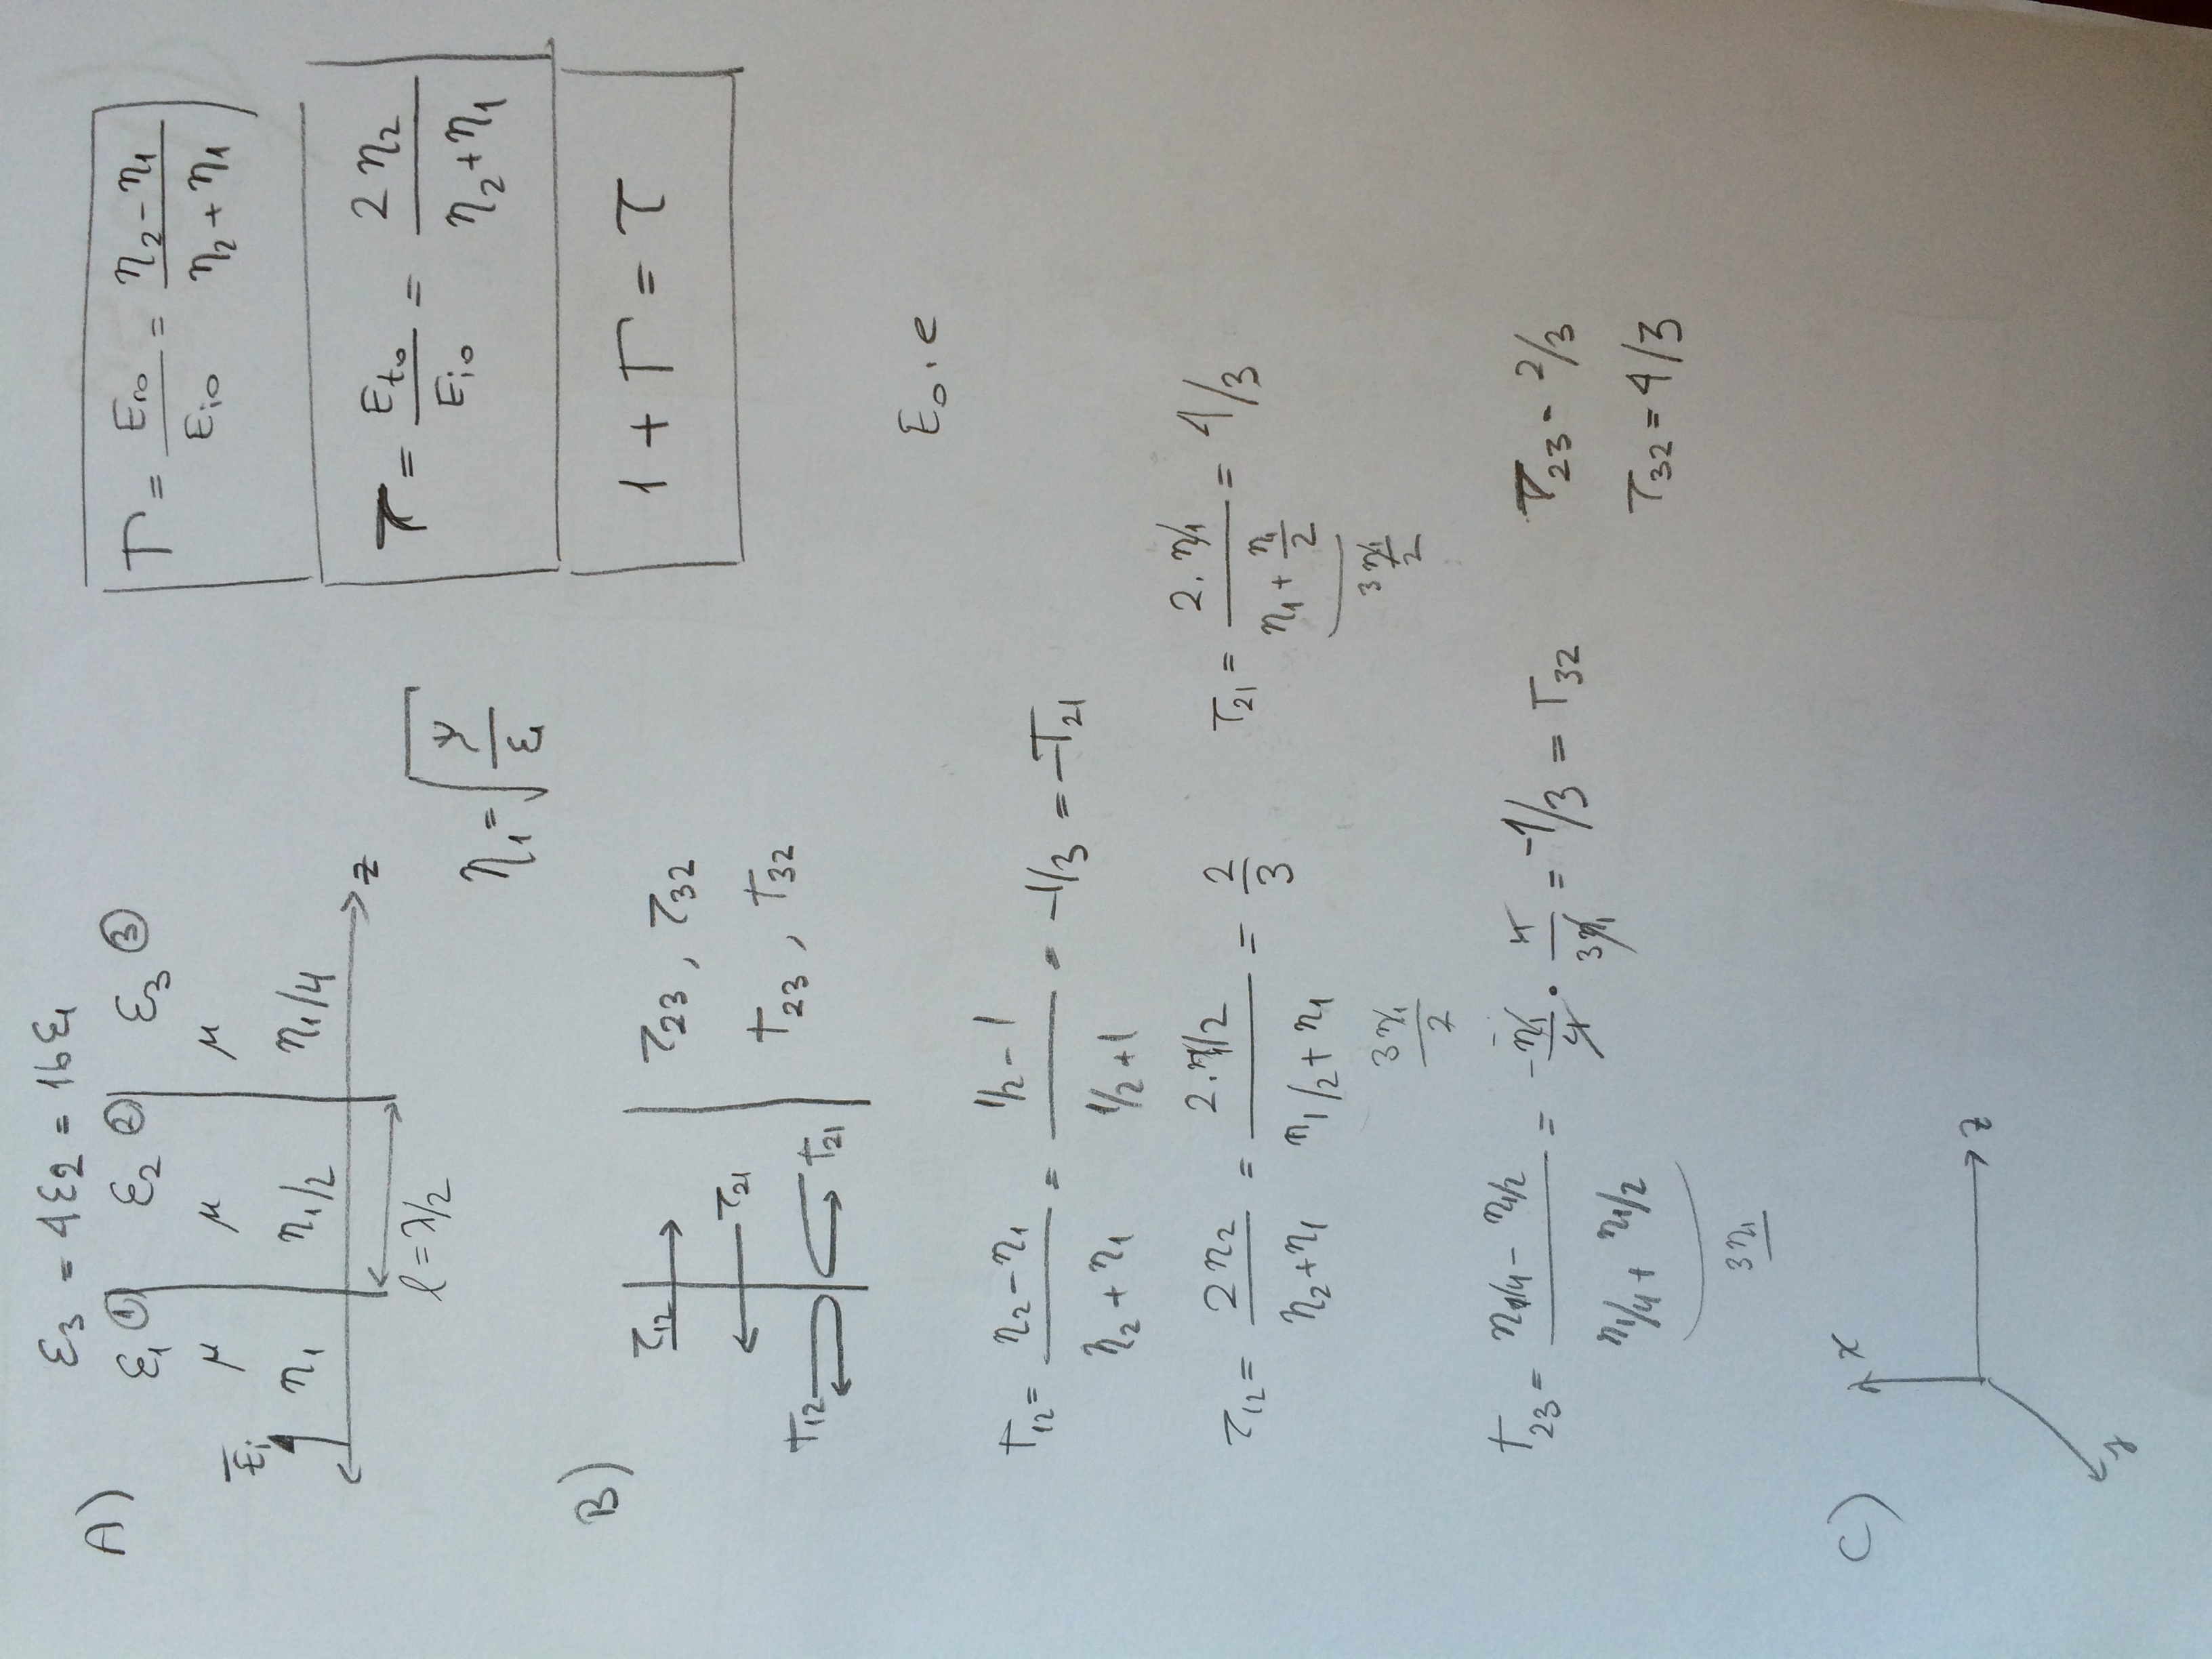 ε3 = 4ε2 = 16ε1
A)
ε1 ① ε2 ② ε3 ③
μ μ μ
Ei
η1 η1/2 η1/4
z
l = λ/2
η1 = √(μ/ε1)
Γ = Ero/Eio = (η2 - η1)/(η2 + η1)
τ = Eto/Eio = 2η2/(η2 + η1)
1 + Γ = τ
B)
τ12
τ21
Γ12 Γ21
τ23 , τ32
Γ23 , Γ32
E0 . e
Γ12 = (η2 - η1)/(η2 + η1) = (1/2 - 1)/(1/2 + 1) = -1/3 = -Γ21
τ12 = 2η2/(η2 + η1) = (2.η1/2)/(η1/2 + η1) = 2/3
3η1/2
τ21 = 2.η1/(η1 + η1/2) = 4/3
3η1/2
Γ23 = (η1/4 - η1/2)/(η1/4 + η1/2) = -η1/4 · 4/3η1 = -1/3 = Γ32
3η1
τ23 = 2/3
τ32 = 4/3
C)
x
z
y